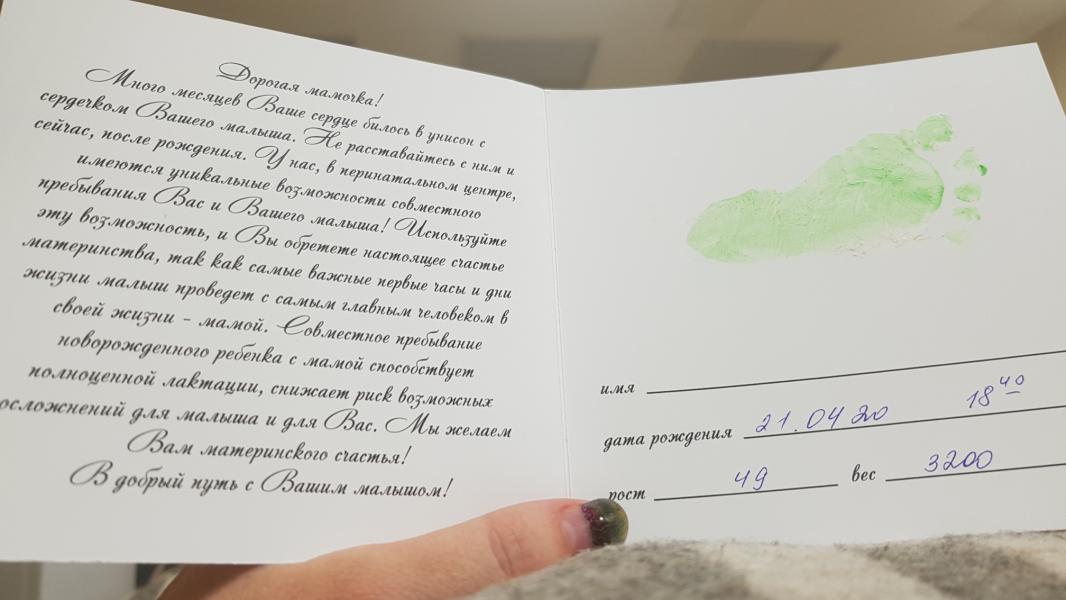 Дорогая мамочка!
Много месяцев Ваше сердце билось в унисон с
сердечком Вашего малыша. Не расставайтесь с ним и
сейчас, после рождения. У нас, в перинатальном центре,
имеются уникальные возможности совместного
пребывания Вас и Вашего малыша! Используйте
эту возможность, и Вы обретете настоящее счастье
материнства, так как самые важные первые часы и дни
жизни малыш проведет с самым главным человеком в
своей жизни - мамой. Совместное пребывание
новорожденного ребенка с мамой способствует
полноценной лактации, снижает риск возможных
осложнений для малыша и для Вас. Мы желаем
Вам материнского счастья!
В добрый путь с Вашим малышом!
имя
дата рождения 21.04 20 18 40
рост 49 вес 3200